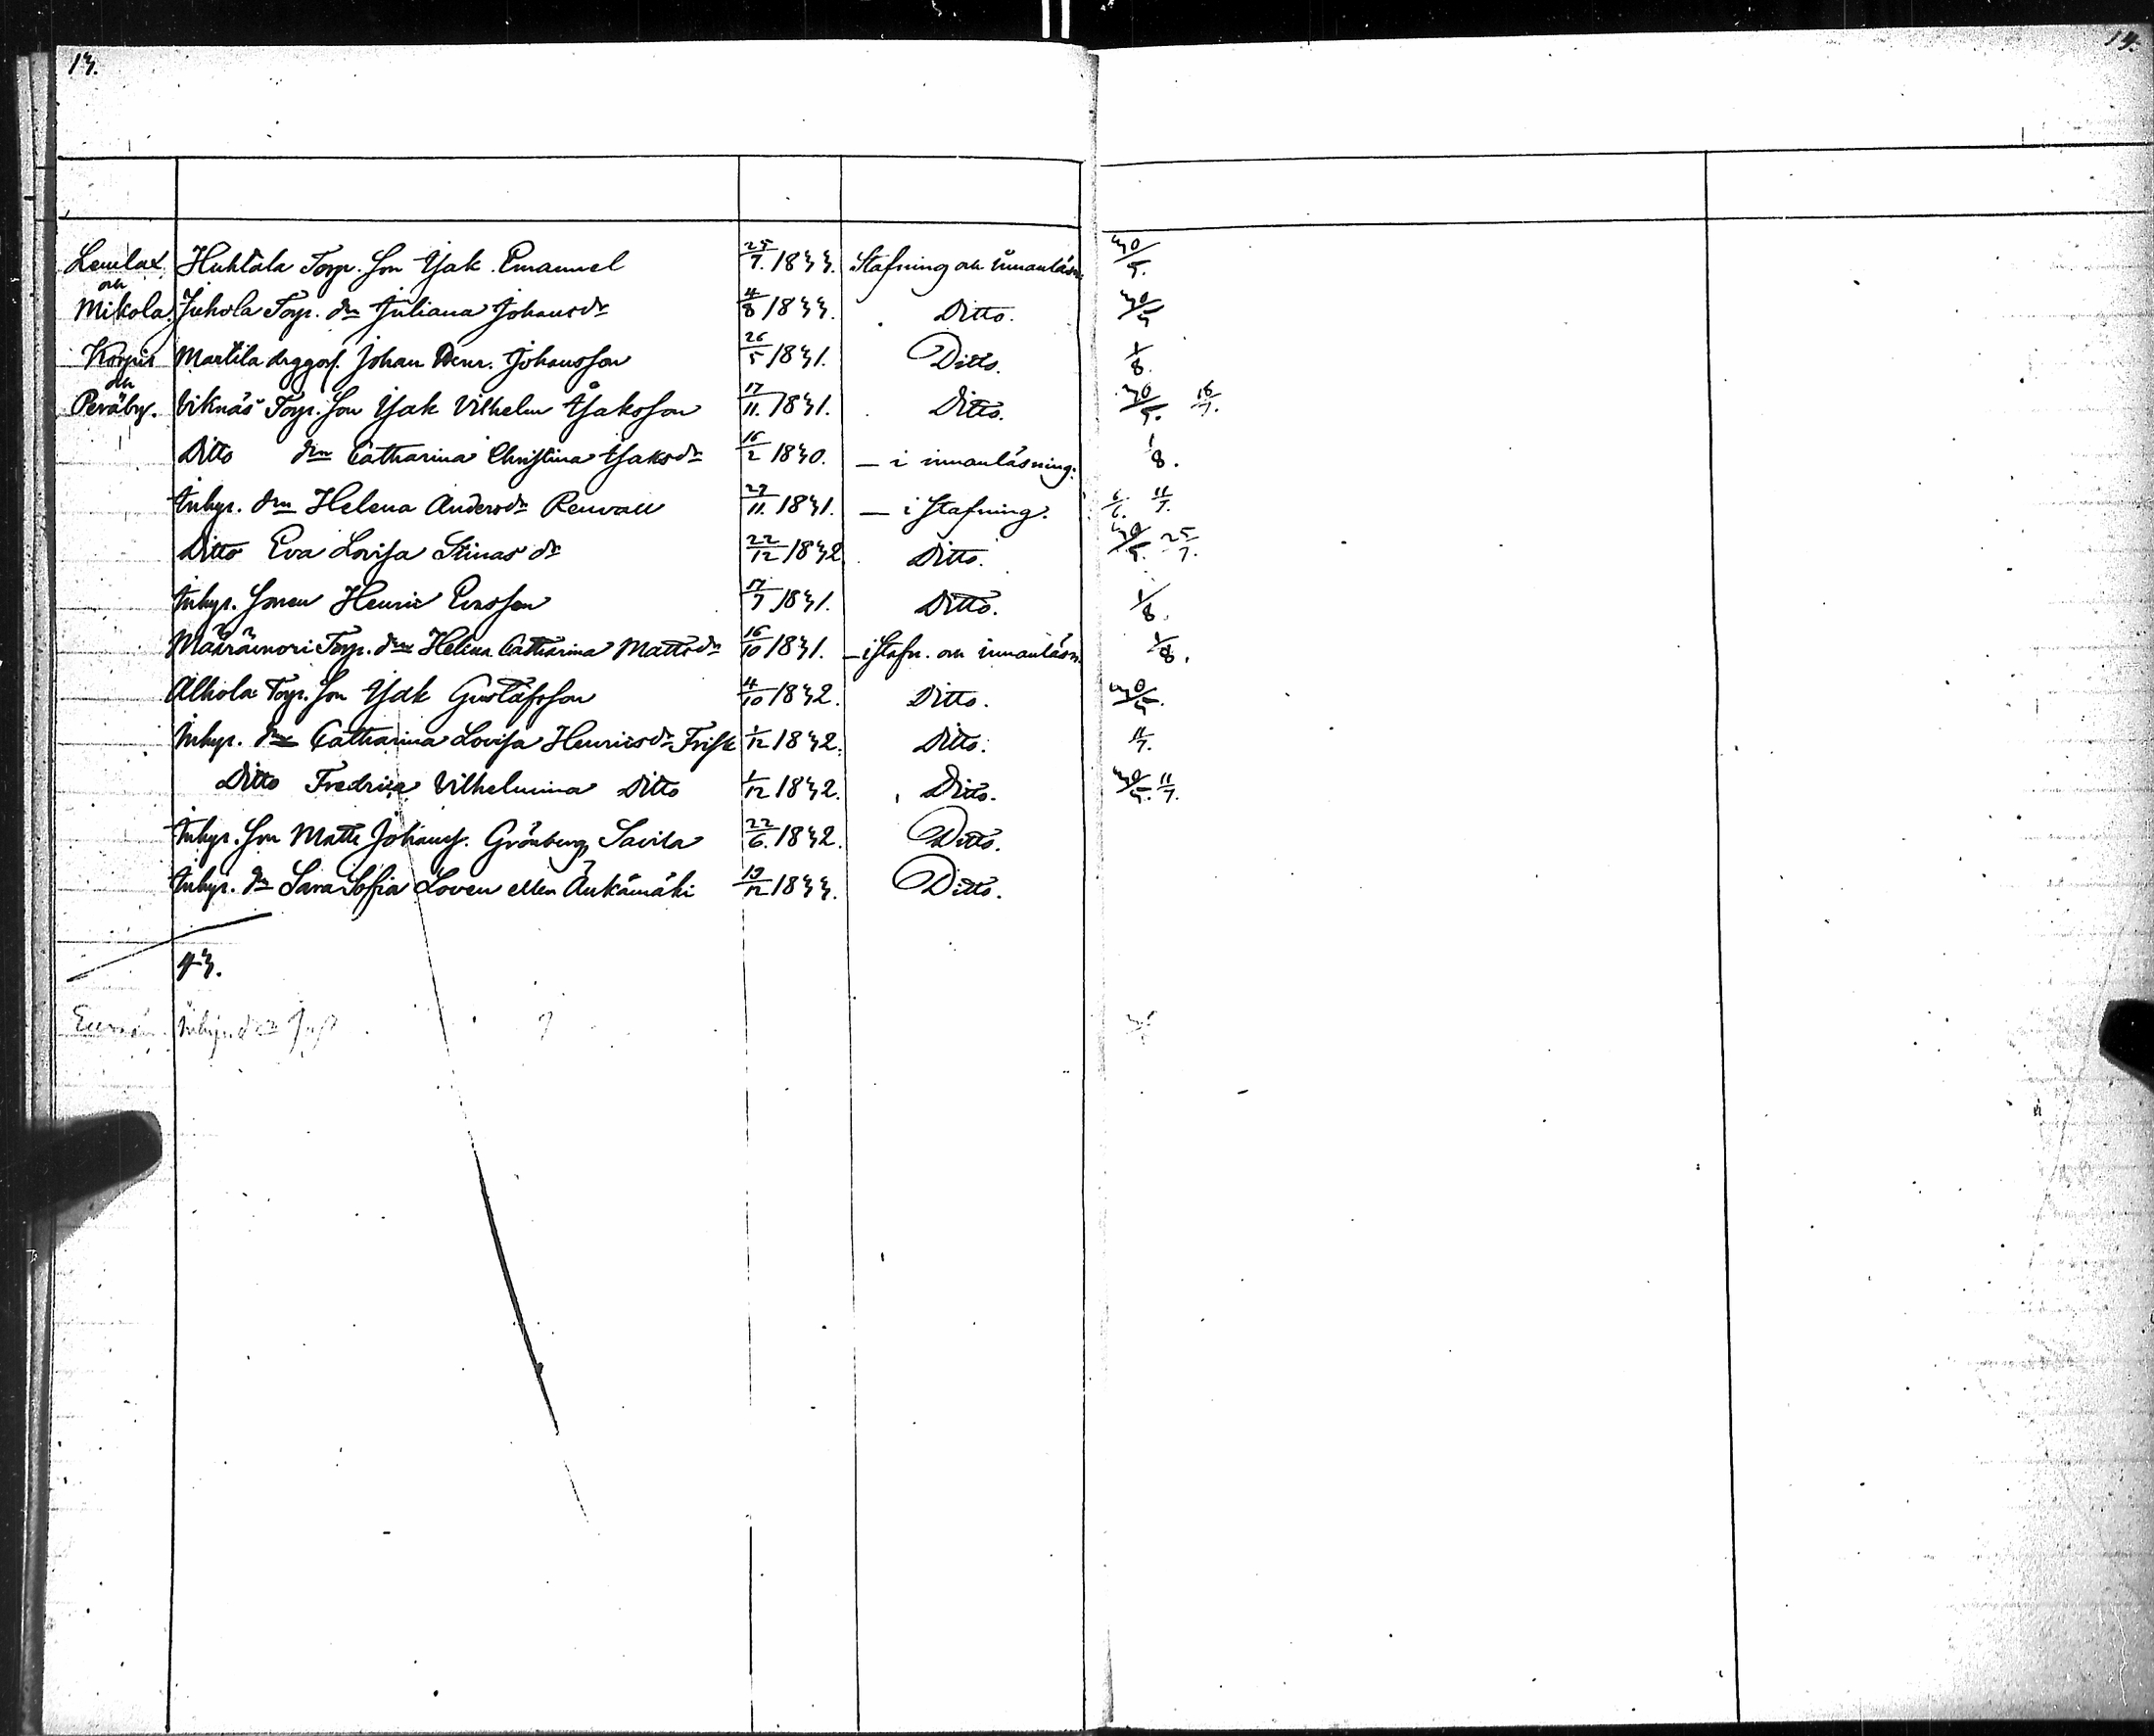 13.
14.
Lemlax Huhtala Torp. Son Isak Emanuel 25/7. 1833. Stafning och innanläsn. 30/5.
och
Mikola. Juhola Torp. dn Juliana Johansdr 4/8 1833. Ditto. 30/5
Korpis Martila drggoss. Johan Henr. Johansson 26/5 1831. Ditto. 1/8.
och
Peräby. Viknäs Torp. Son Isak Vilhelm Isaksson 17/11. 1831. Ditto. 30/5. 18/7.
Ditto drn Catharina Christina Isaksdr 16/2 1830. — i innanläsning. 1/8.
Inhys. drn Helena Andersdr Renvall 27/11. 1831. — i Stafning. 6/6. 11/7.
Ditto Eva Lovisa Stinas dr 22/12 1832 Ditto. 30/5. 25/7.
Inhys. Sonen Henric Ersson 17/7 1831. Ditto. 1/8.
Määräinori Torp. drn Helena Catharina Mattsdr 16/10 1831. — i Stafn. och innanläsn. 1/8.
Alhola Torp. Son Isak Gustafsson 4/10 1832. Ditto. 30/5.
Inhys. drn Catharina Lovisa Henricsdr Frisk 1/12 1832. Ditto. 11/7.
Ditto Fredrica Vilhelmina Ditto 1/12 1832. Ditto. 30/5. 11/7.
Inhys. Son Matts Johanss. Grönberg Savila 22/6. 1832. Ditto.
Inhys. dr Sara Sofia Loven eller Änkämäki 13/12 1833. Ditto.
93.
Inhys. drn